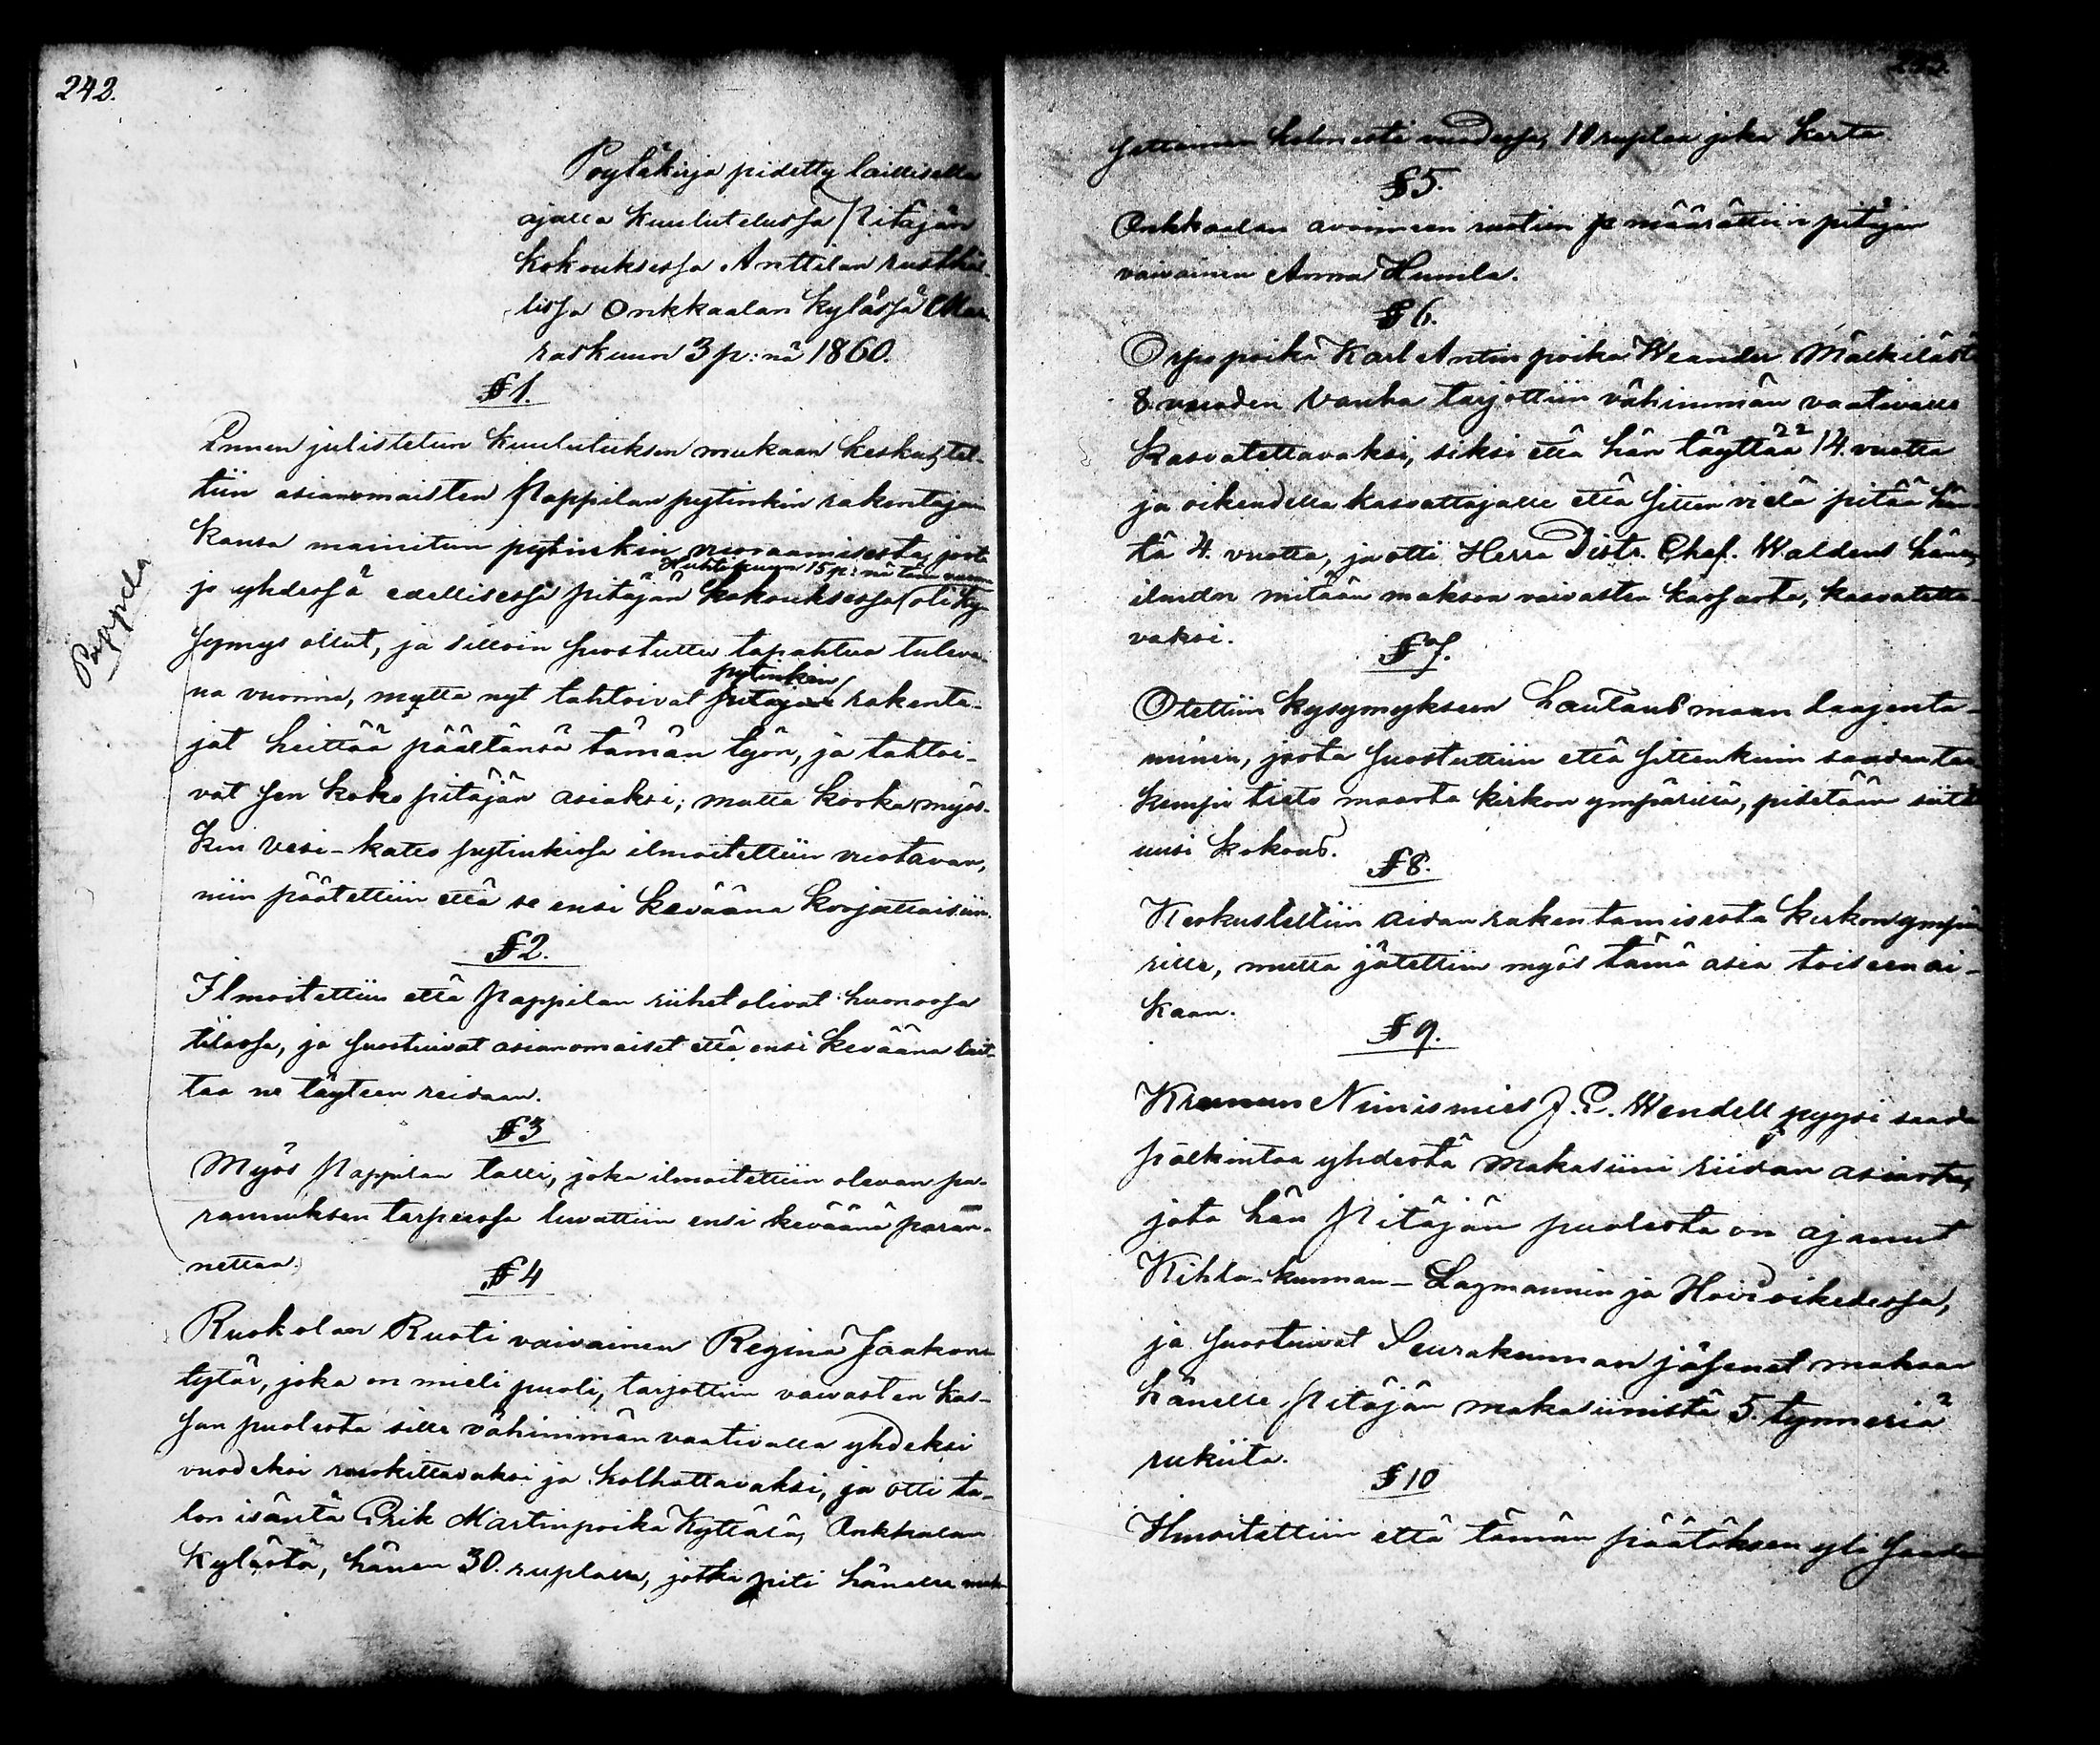 242.
Pöytäkirja pidetty laillisella
ajalla kuulutelussa Pitäjän
kokouksessa Anttilan rusthol-
lissa Onkkaalan kylässä Mar-
raskuun 3 p:nä 1860.
§ 1.
Ennen julistetun kuulutuksen mukaan keskustel-
tiin asianomaisten Pappilan pytinkin rakentajan
kansa mainitun pytinkin vuoraamisesta, josta
Huhtikuun 15 p:nä tänä vuonna
jo yhdessä edellisessä pitäjän kokouksessa oli ky-
symys ollut, ja silloin suostuttu tapahtua tuleva-
pytinkin
na vuonna, mutta nyt tahtoivat pitäjän rakenta-
jat heittää päältänsä tämän työn, ja tahtoi-
vat sen koko pitäjän asiaksi; mutta koska myös-
kin vesi-katto pytinkissä ilmoitettiin vuotavan,
niin päätettiin että se ensi kevännä korjattaisiin.
§ 2.
Ilmoitettiin että Pappilan riihet olivat huonossa
tilassa, ja suostuivat asianomaiset että ensi kevännä lait-
taa ne täyteen reidaan.
§ 3
Myös Pappilan talli, joka ilmoitettiin olevan pa-
rannuksen tarpeessa luvattiin ensi kevännä paran-
nettaa.
Pappila
§ 4
Ruokolan Ruoti vaivainen Regina Jaakon
tytär, joka on mieli puoli, tarjottiin vaivasten kas-
san puolesta sille vähimmän vaativalla yhdeksi
vuodeksi ruokittavaksi ja kolhottavaksi, ja otti ta-
lon isäntä Erik Martinpoika Kyttälä, Onkkalan
kylästä, hänen 30. ruplalla, jotka piti hänelle mak-
settaman kolmesti vuodessa, 10 ruplaa joka kerta.
§ 5.
Onkkaalan avoimeen ruotiin määrättiin pitäjän
vaivainen Anna Humla.
§ 6.
Orpopoika Karl Antin poika Weander Mälkilästä
8. vuoden vanha tarjottiin vähimmän vaativalle
kasvatettavaksi, siksi että hän täyttää 14. vuotta
ja oikeudella kasvattajalle että sitten vielä pitää hän-
tä 4. vuotta, ja otti Herra Distr. Chef. Waldens hänen,
ilman mitään maksoa vaivasten kassasta, kasvatetta-
vaksi.
§ 7.
Otettiin kysymykseen Hautaus maan laajenta-
minen, josta suostuttiin että sittenkuin saadaan tar-
kempi tieto maasta kirkon ympärillä, pidetään siitä
uusi kokous.
§ 8.
Keskusteltiin aidan rakentamisesta kirkon ympä-
rille, mutta jätettiin myös tämä asia toiseen ai-
kaan.
§ 9.
Krunun Nimismies J. E. Wendell pyysi saada
palkintoa yhdestä makasiini riidan asiasta,
jota hän Pitäjän puolesta on ajanut
Kihla-kunnan- Lagmannin ja Hovioikedessa,
ja suostuivat Seurakunnan jäsenet maksaa
hänelle Pitäjän makasiinistä 5. tynneriä
rukiita.
§ 10
Ilmoitettiin että tämän päätöksen yli saada